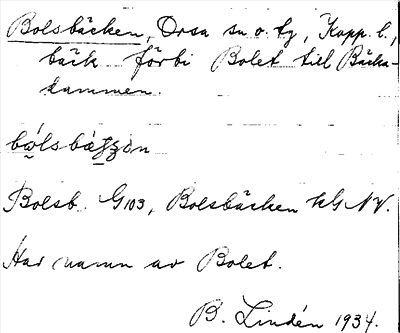 Bolsbäcken, Orsa sn o. tg, Kopp. l.,
bäck förbi Bolet till Bäcka-
dammen.
Bolsb. G103, Bolsbäcken kG NV.
Har namn av Bolet.
B. Lindén 1934.